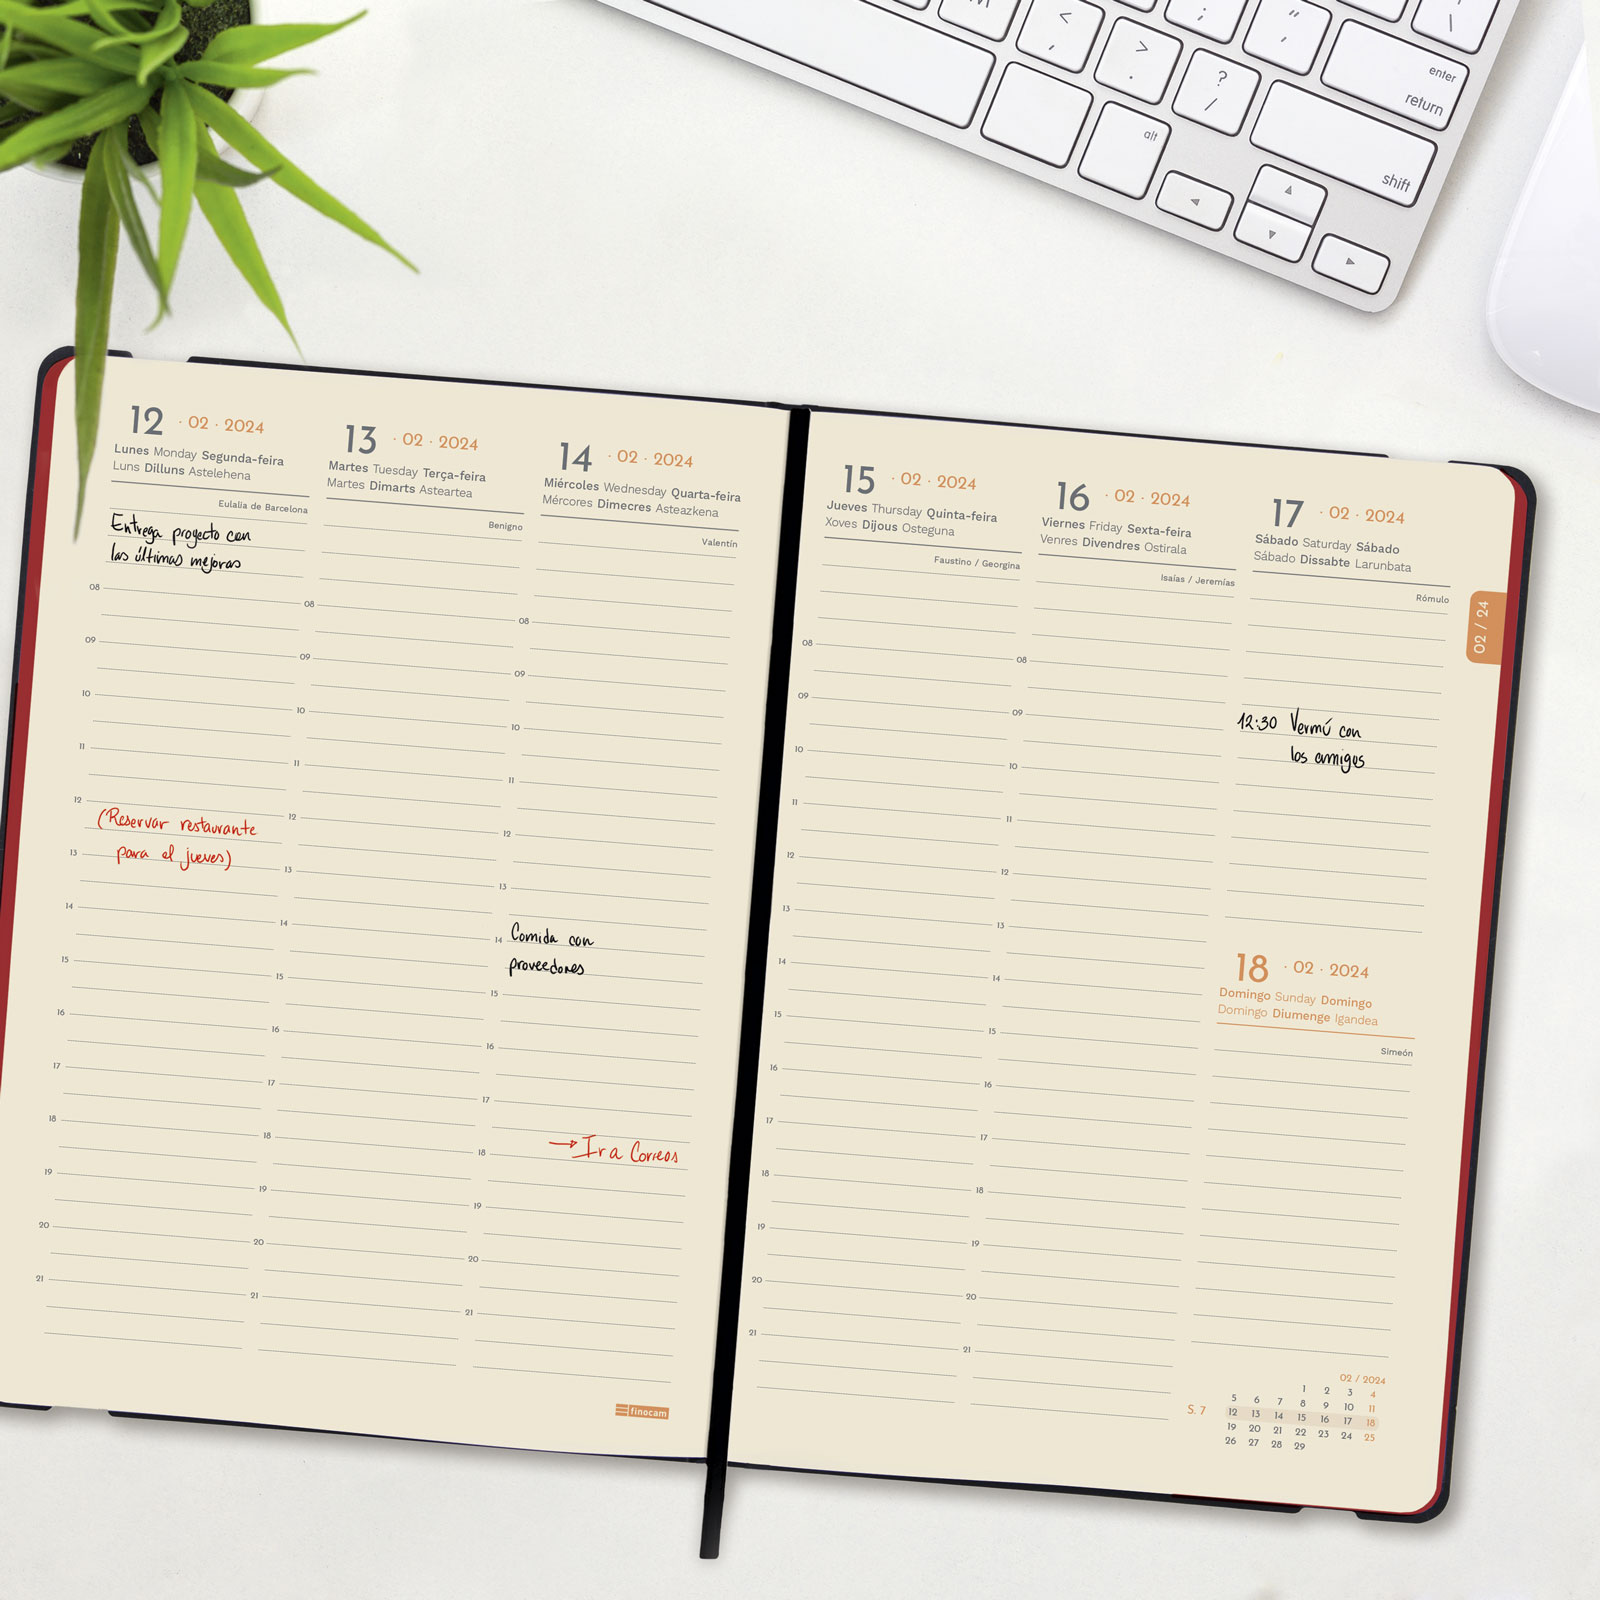 M
<
,
>
.
?
/
:
;
"
,
\
enter
return
alt
shift
12 · 02 · 2024
Lunes Monday Segunda-feira
Luns Dilluns Astelehena
Eulalia de Barcelona
Entrega proyecto con
las últimas mejoras
08
09
10
11
12
(Reservar restaurante
para el jueves)
13
14
15
16
17
18
19
20
21
13 · 02 · 2024
Martes Tuesday Terça-feira
Martes Dimarts Asteartea
Benigno
08
09
10
11
12
13
14
15
16
17
18
19
20
21
14 · 02 · 2024
Miércoles Wednesday Quarta-feira
Mércores Dimecres Asteazkena
Valentín
08
09
10
11
12
13
14 Comida con
proveedores
15
16
17
→ Ir a Correos
18
19
20
21
finocam
15 · 02 · 2024
Jueves Thursday Quinta-feira
Xoves Dijous Osteguna
Faustino / Georgina
08
09
10
11
12
13
14
15
16
17
18
19
20
21
16 · 02 · 2024
Viernes Friday Sexta-feira
Venres Divendres Ostirala
Isaías / Jeremías
08
09
10
11
12
13
14
15
16
17
18
19
20
21
17 · 02 · 2024
Sábado Saturday Sábado
Sábado Dissabte Larunbata
Rómulo
02 / 24
12:30 Vermú con
los amigos
18 · 02 · 2024
Domingo Sunday Domingo
Domingo Diumenge Igandea
Simeón
02 / 2024
1 2 3 4
5 6 7 8 9 10 11
S. 7 12 13 14 15 16 17 18
19 20 21 22 23 24 25
26 27 28 29